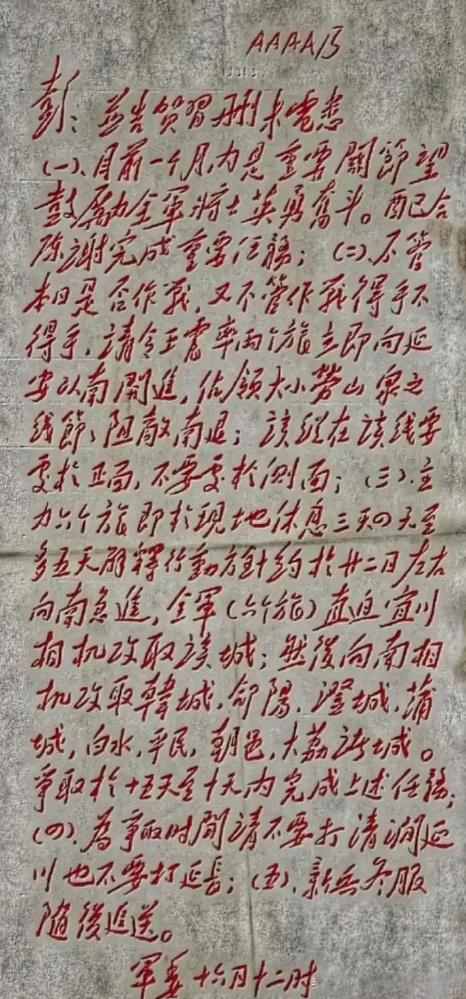 AAAA乃
彭:並告贺習刪未電悉
(一).目前一个月,内是重要關節望
鼓励全軍將士英勇奮斗。配合
陈谢完成重要任務;(二).不管
本日是否作戰,又不管作戰得手不
得手,請令王震率两个旅立即向延
安以南開進,佔領大小劳山泉之
线節節阻敵南退;該縱在該线要
處於正面,不要處於側面;(三).主
力六个旅即於現地休息三天四天至
多五天解釋行動方針約於廿二日左右
向南急進,全軍(六个旅)直迫宜川
相机攻取該城;然後向南相
机攻取韓城,郃陽,澄城,蒲
城,白水,平民,朝邑,大荔諸城。
爭取於十五天至十天内完成上述任務;
(四).為爭取时間請不要打清澗延
川也不要打延長;(五).新兵冬服
隨後追送。
軍委 十六日十二时